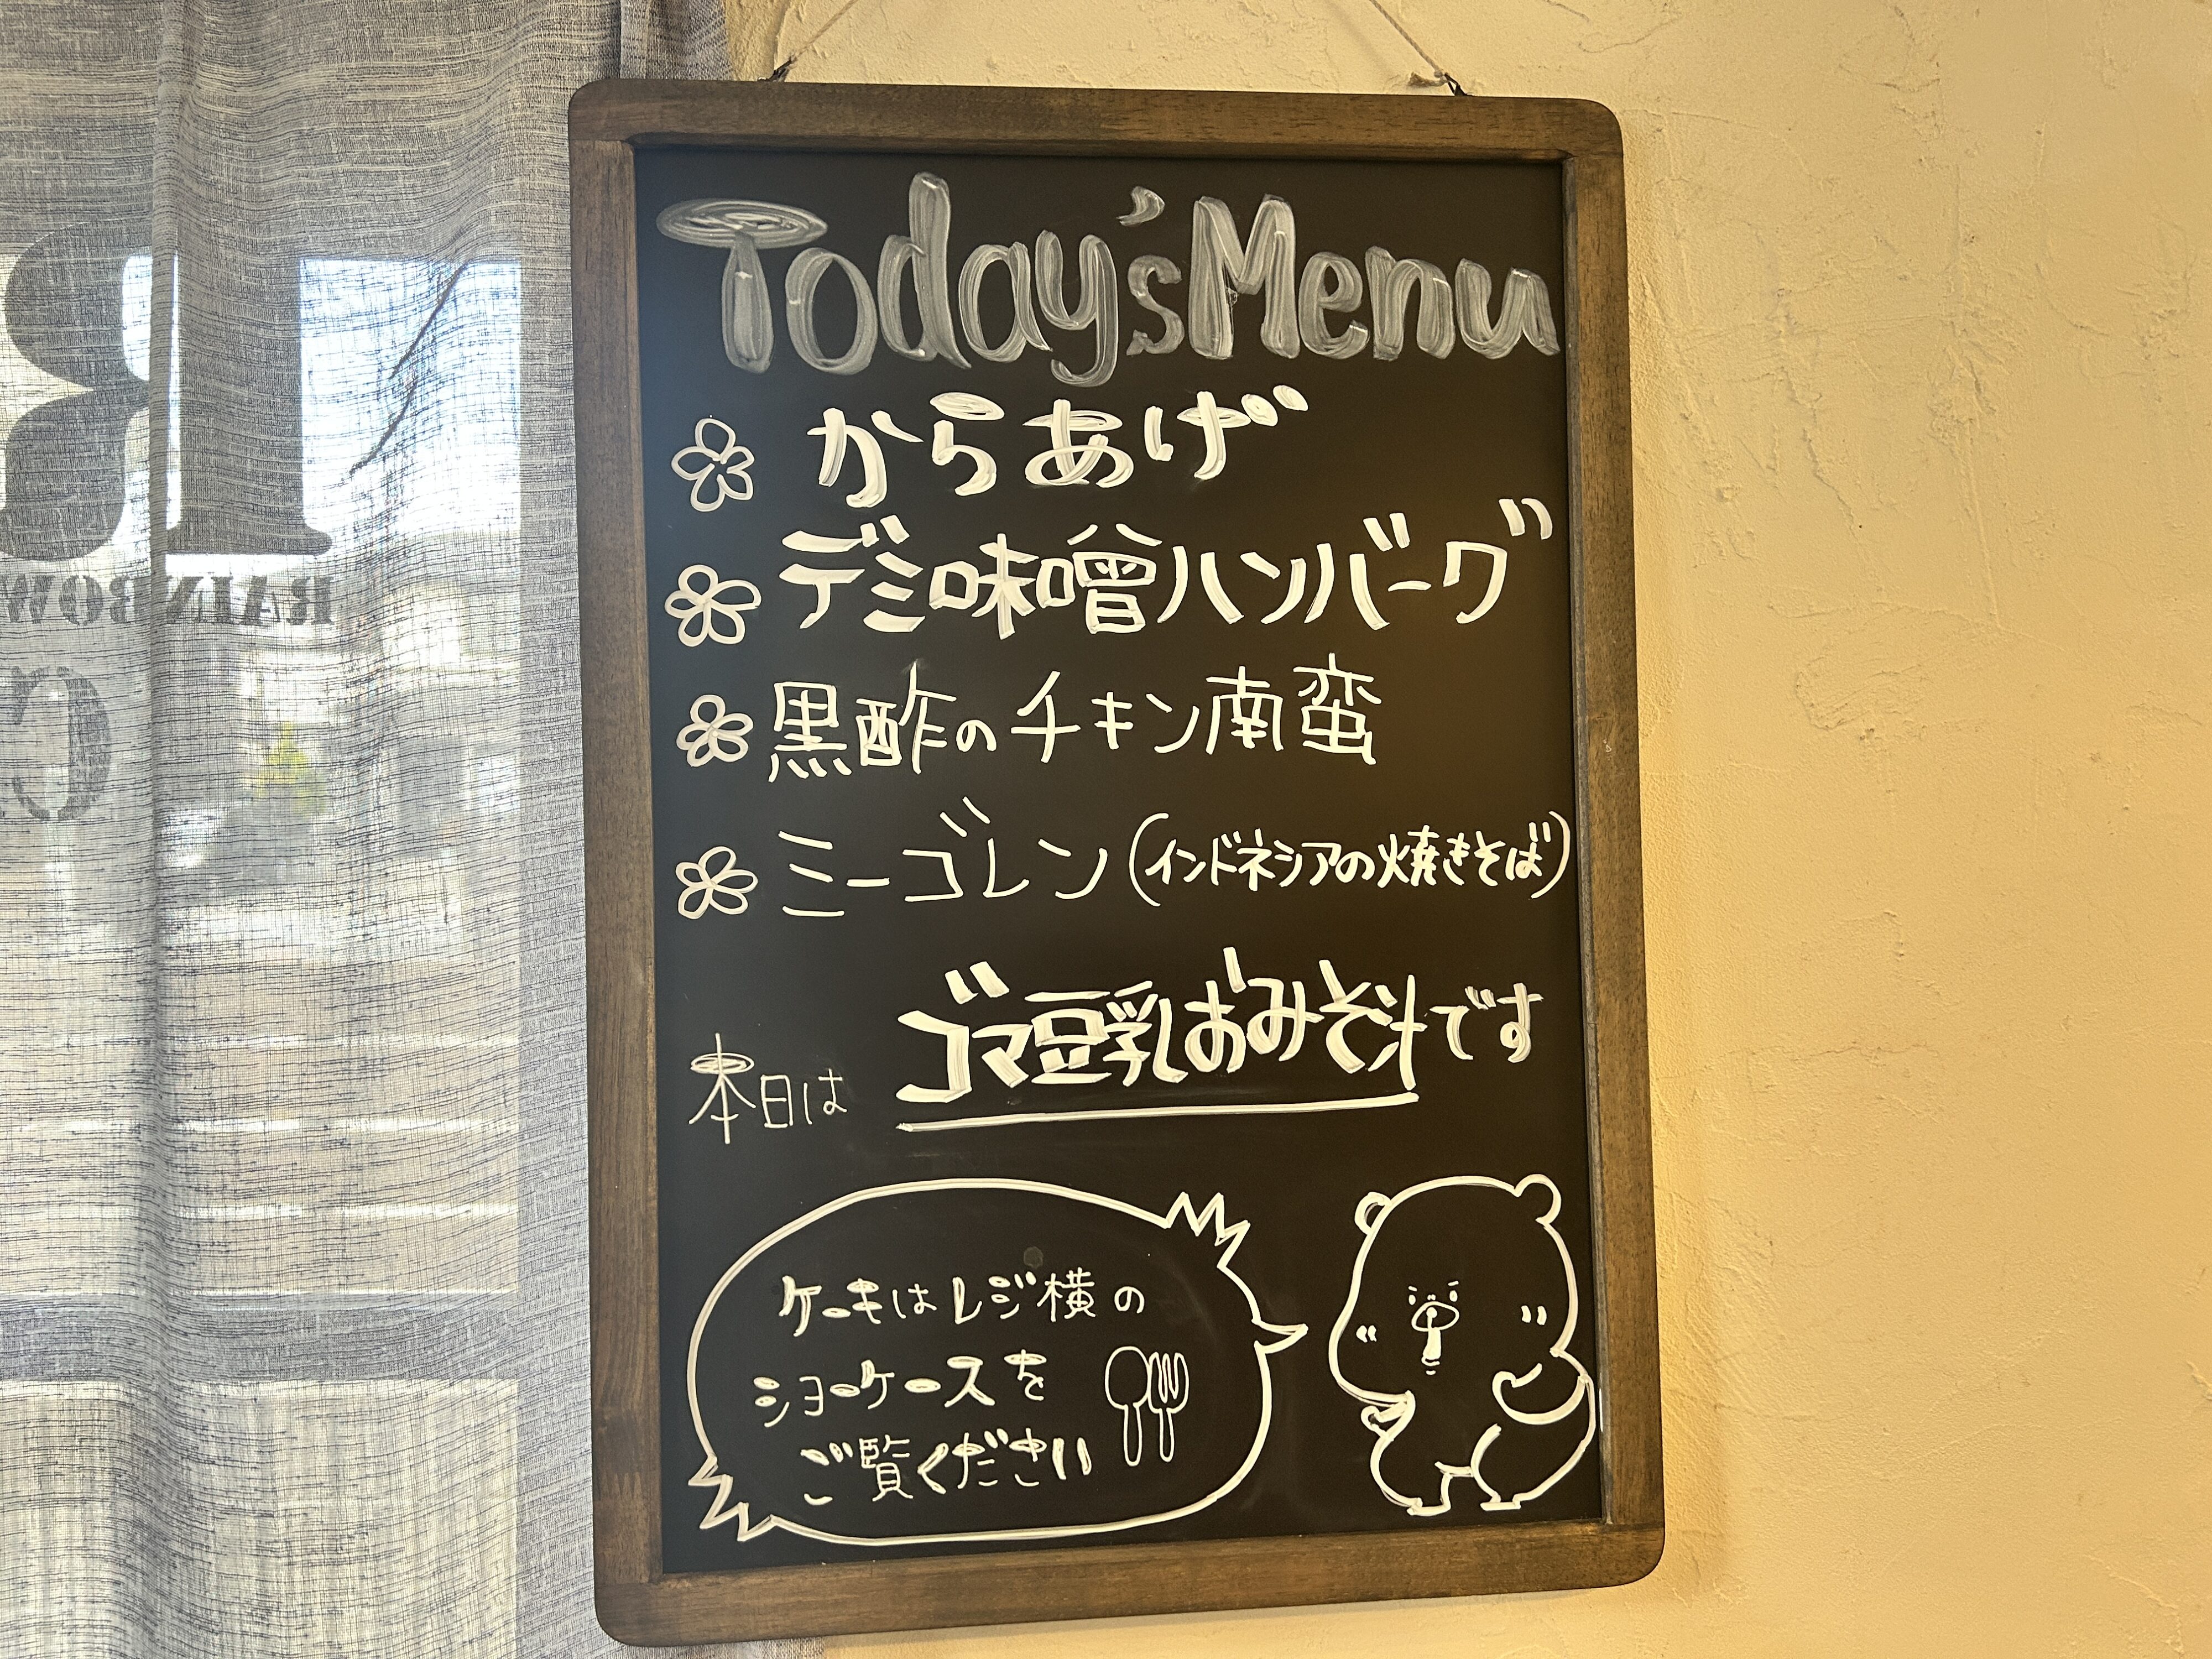 Today's Menu
からあげ
デミ味噌ハンバーグ
黒酢のチキン南蛮
ミーゴレン(インドネシアの焼きそば)
本日は ゴマ豆乳おみそ汁です
ケーキはレジ横の
ショーケースを
ご覧ください
RAINBOW